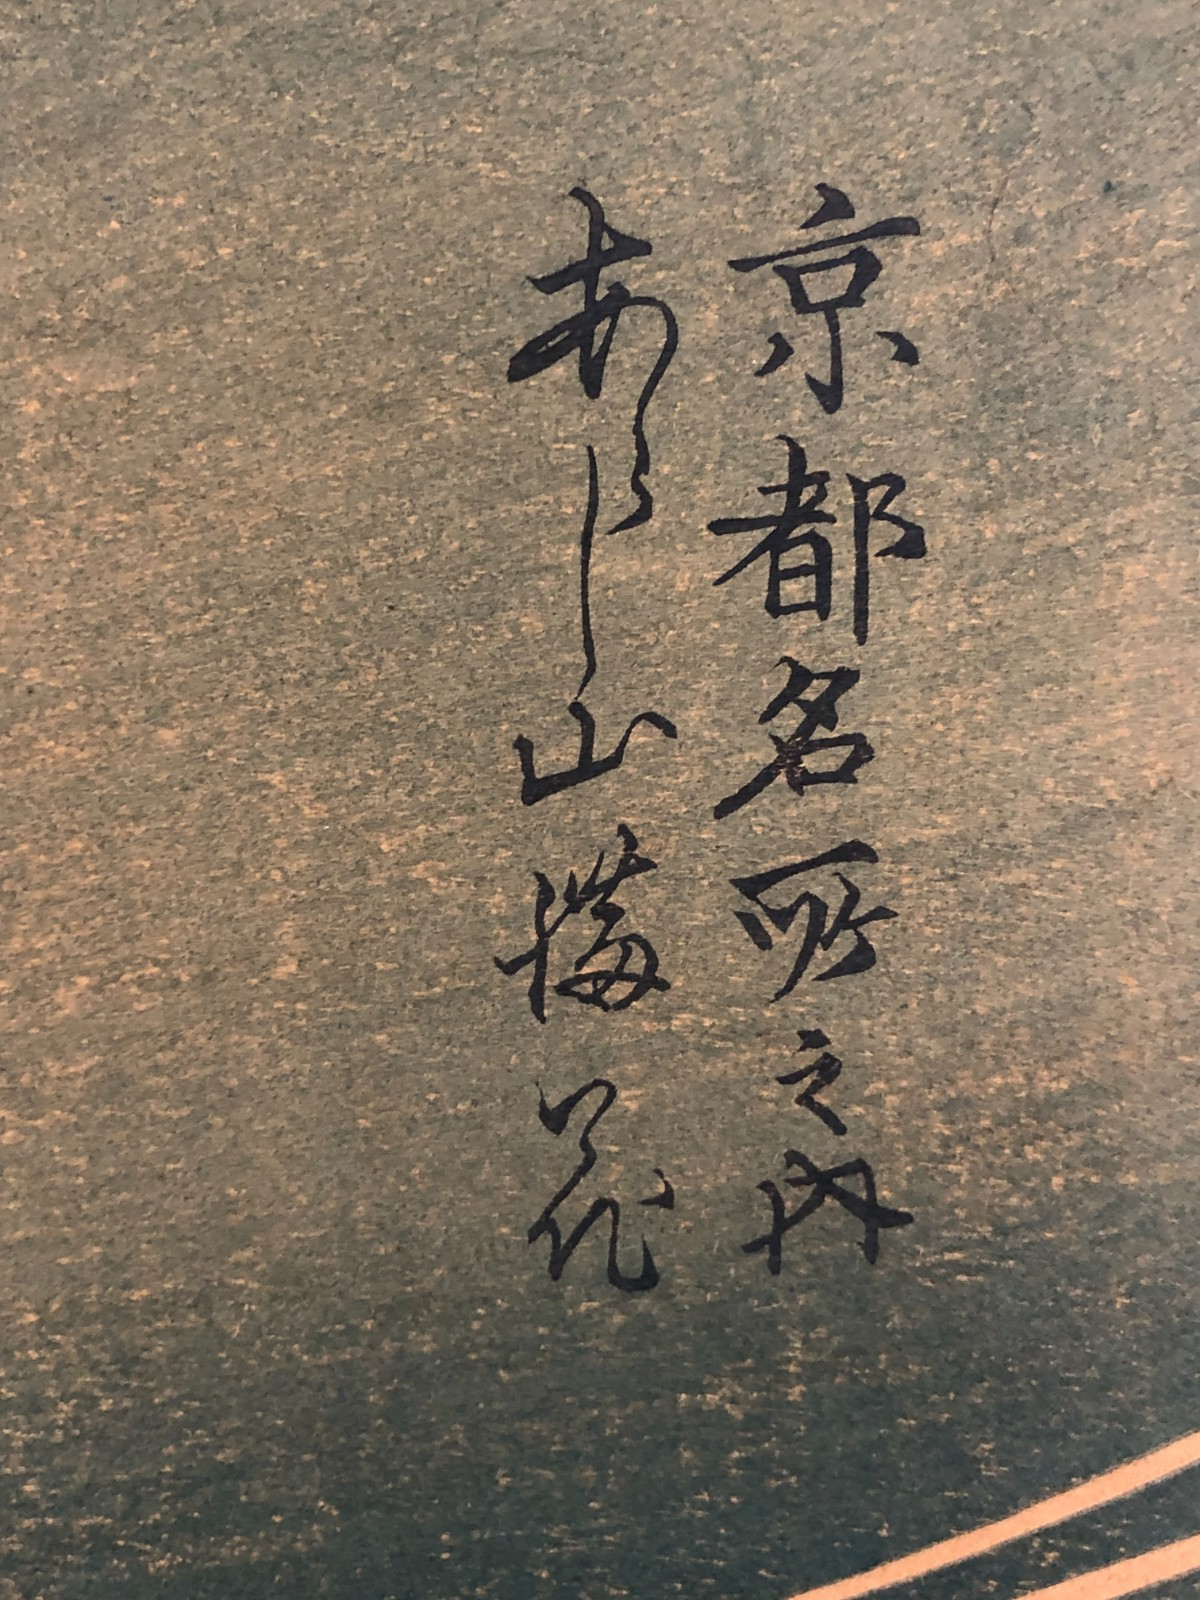 京都名所之内
あらし山満花